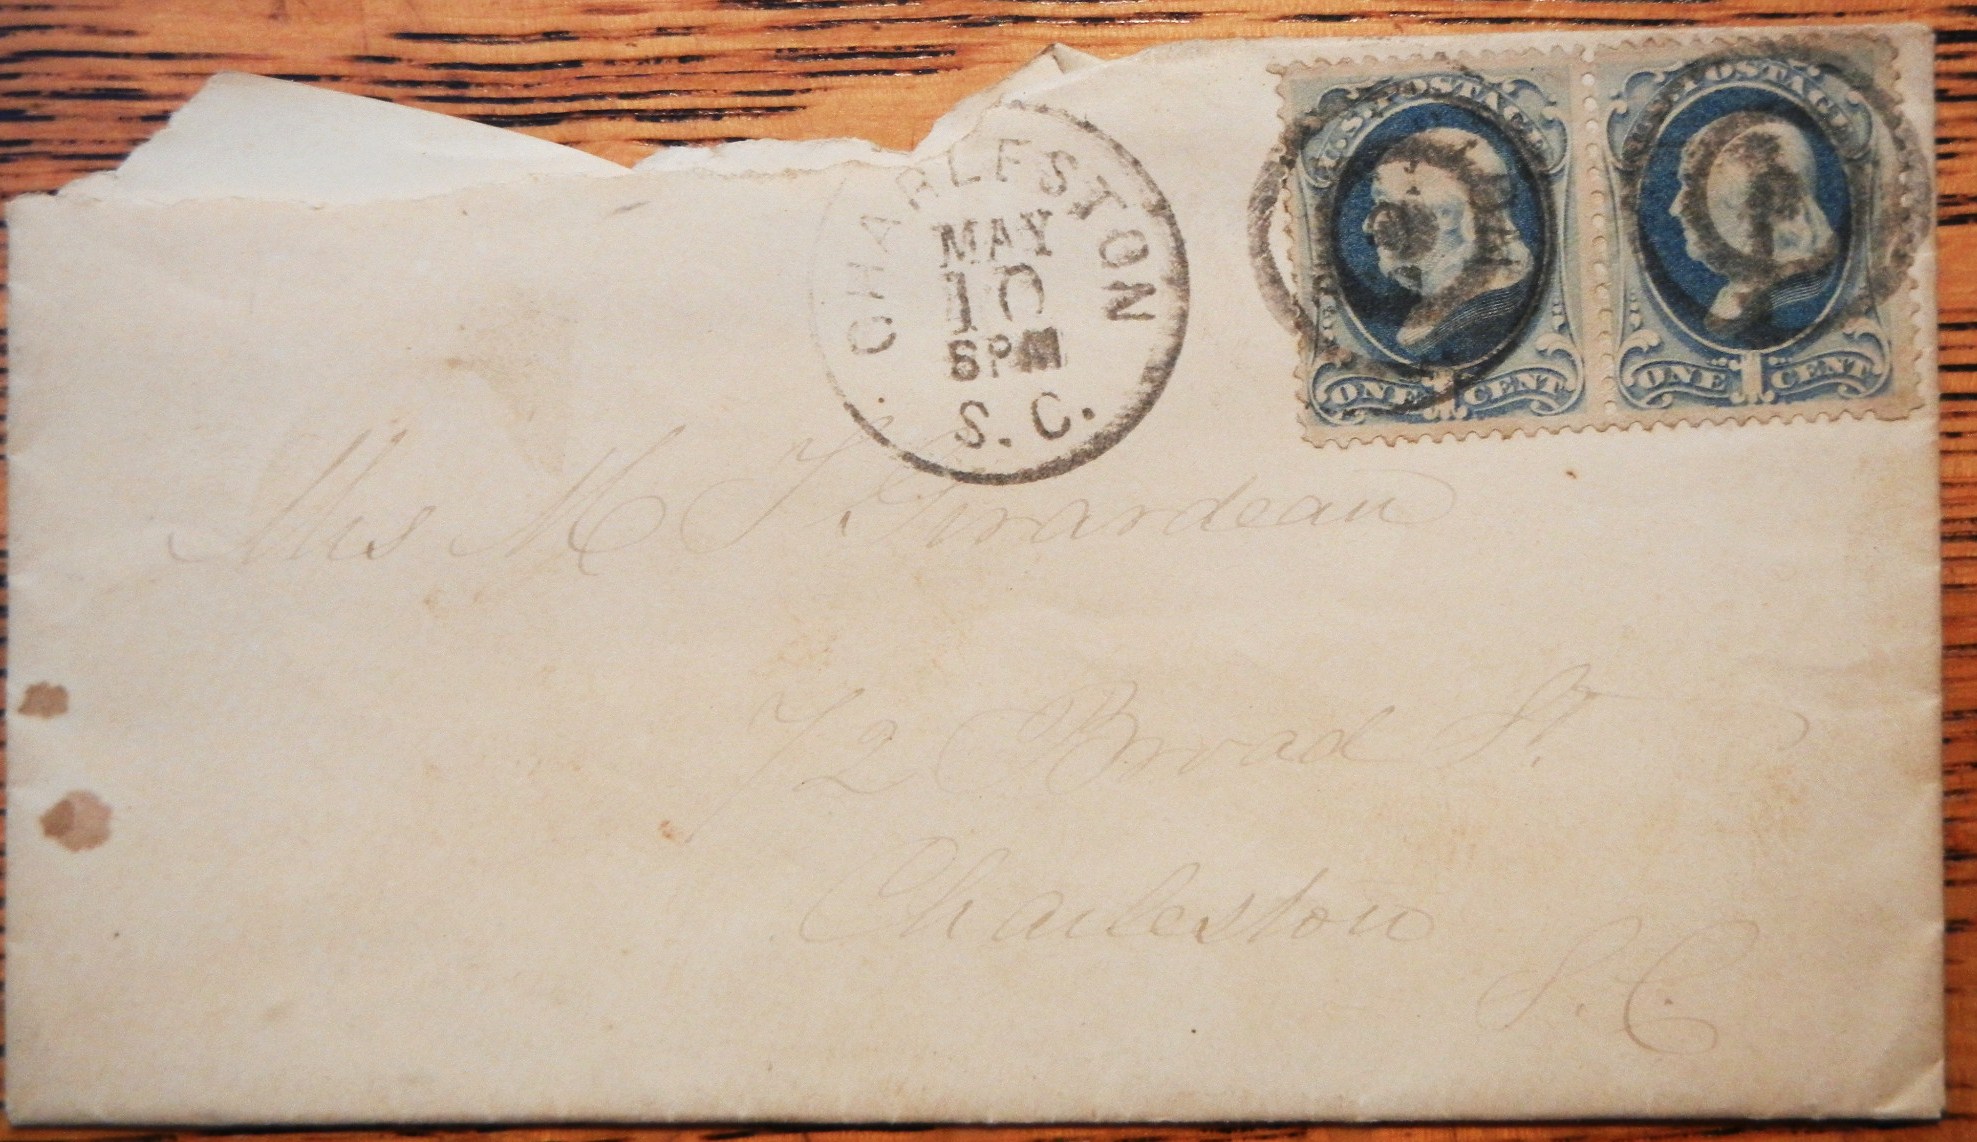 CHARLESTON
MAY
10
6PM
S. C.
U.S. POSTAGE
ONE 1 CENT
U.S. POSTAGE
ONE 1 CENT
Mrs M J Girardeau
72 Broad St
Charleston
S. C.